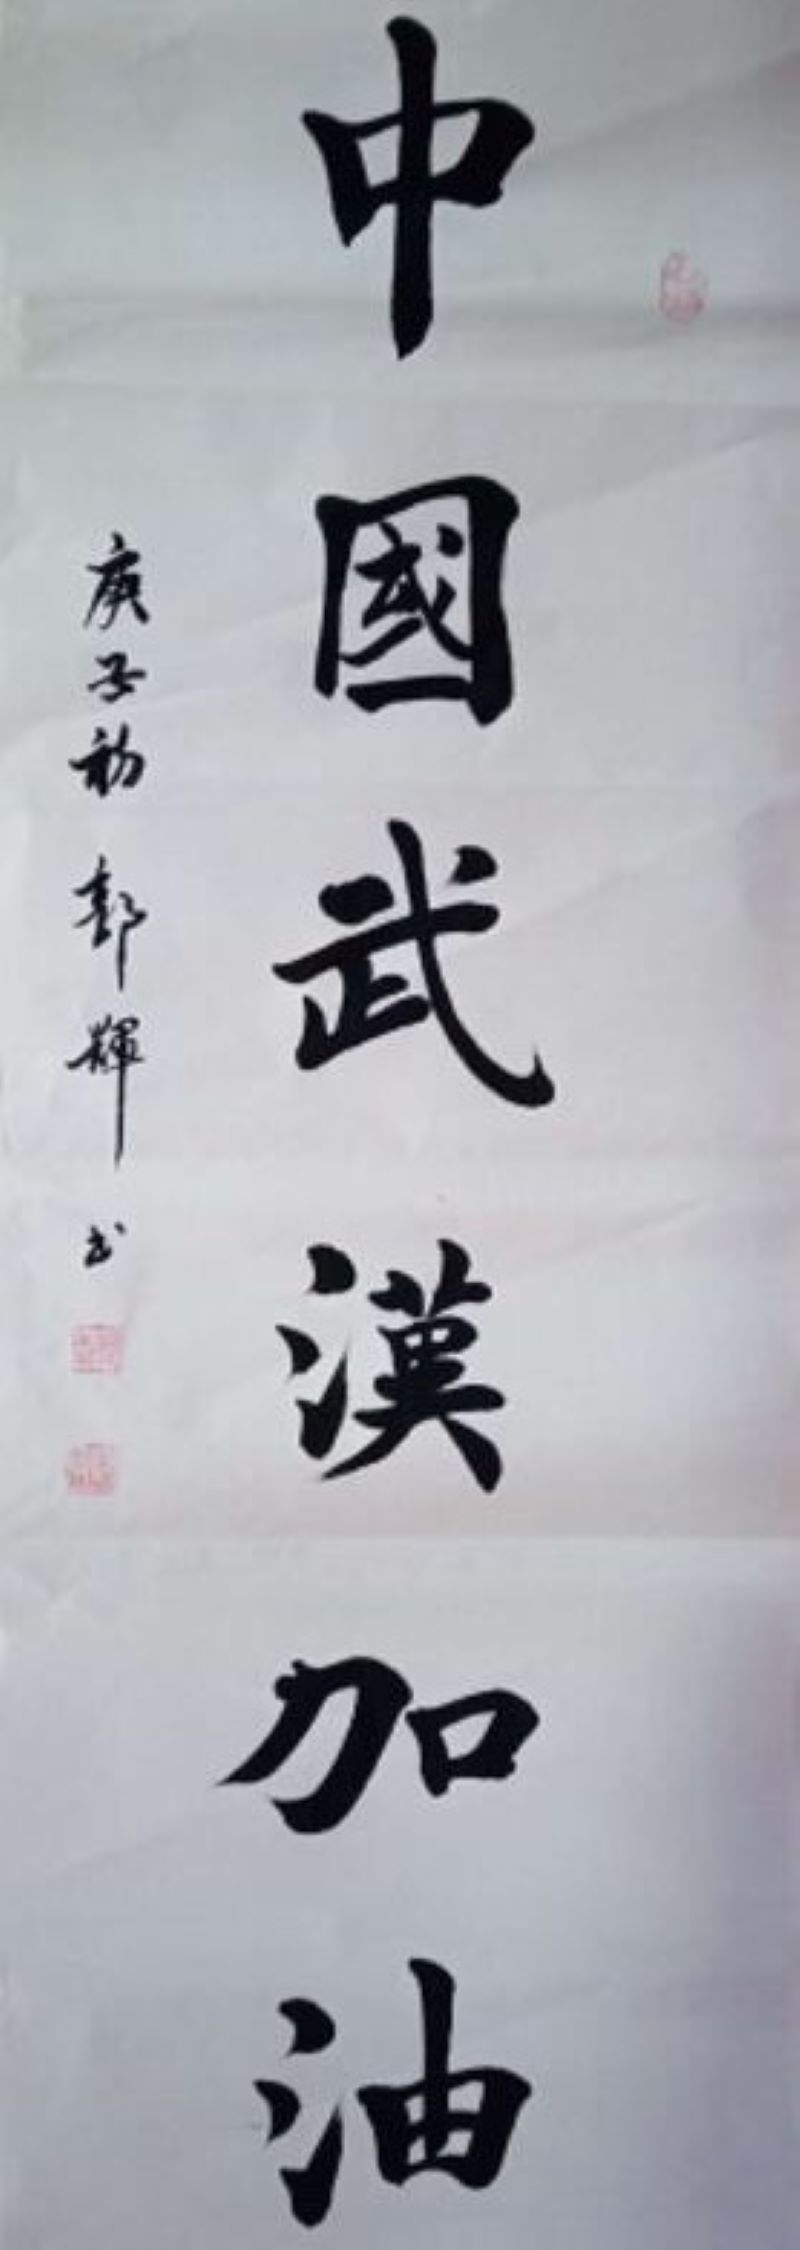 中國武漢加油
庚子初 郭輝 书